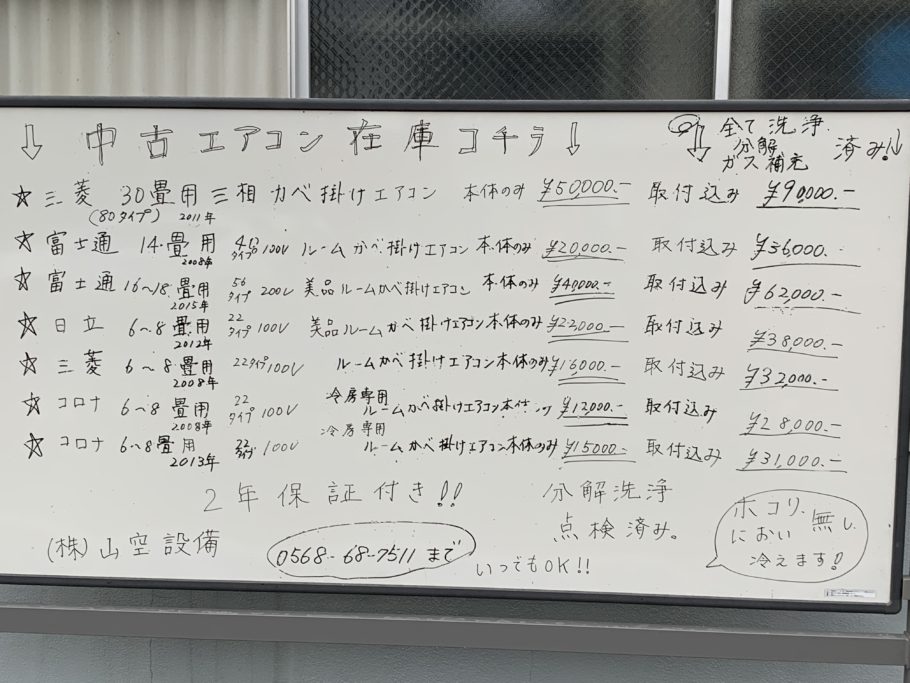 ↓ 中古エアコン在庫コチラ ↓ 全て洗浄
↓ 分解 済み! ↓
ガス補充
☆ 三菱 30畳用 三相 カベ掛けエアコン 本体のみ ¥50,000.- 取付込み ¥90,000.-
(80タイプ) 2011年
☆ 富士通 14畳用 40タイプ 100V ルームかべ掛けエアコン 本体のみ ¥20,000.- 取付込み ¥36,000.-
2008年
☆ 富士通 16〜18畳用 56タイプ 200V 美品ルームかべ掛けエアコン 本体のみ ¥40,000.- 取付込み ¥62,000.-
2015年
☆ 日立 6〜8畳用 22タイプ 100V 美品ルームかべ掛けエアコン本体のみ ¥22,000.- 取付込み ¥38,000.-
2012年
☆ 三菱 6〜8畳用 22タイプ100V ルームかべ掛けエアコン本体のみ ¥16,000.- 取付込み ¥32,000.-
2008年
冷房専用
☆ コロナ 6〜8畳用 22タイプ 100V ルームかべ掛けエアコン本体 ¥12,000.- 取付込み ¥28,000.-
2008年
冷房専用
☆ コロナ 6〜8畳用 22タイプ 100V ルームかべ掛けエアコン本体のみ ¥15000.- 取付込み ¥31,000.-
2013年
2年保証付き!! 分解洗浄
点検済み。
(株)山空設備 0568-68-7511まで
いつでもOK!!
ホコリ、
におい 無し
冷えます!